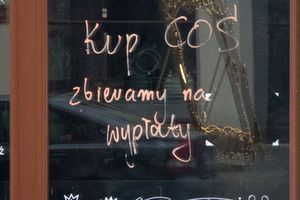 Kup COŚ
zbieramy na
wypłaty